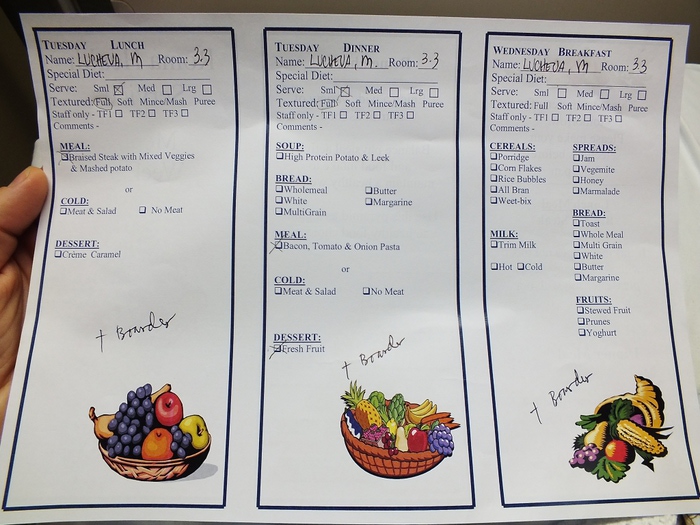 TUESDAY LUNCH
Name: LUCHEVA, M Room: 3.3
Special Diet:
Serve: Sml Med Lrg
Textured: Full Soft Mince/Mash Puree
Staff only - TF1 TF2 TF3
Comments -
MEAL:
Braised Steak with Mixed Veggies
& Mashed potato
or
COLD:
Meat & Salad No Meat
DESSERT:
Créme Caramel
+ Boarder
TUESDAY DINNER
Name: LUCHEVA, M. Room: 3.3
Special Diet:
Serve: Sml Med Lrg
Textured: Full Soft Mince/Mash Puree
Staff only - TF1 TF2 TF3
Comments -
SOUP:
High Protein Potato & Leek
BREAD:
Wholemeal Butter
White Margarine
MultiGrain
MEAL:
Bacon, Tomato & Onion Pasta
or
COLD:
Meat & Salad No Meat
DESSERT:
Fresh Fruit
+ Boarder
WEDNESDAY BREAKFAST
Name: LUCHEVA, M Room: 33
Special Diet:
Serve: Sml Med Lrg
Textured: Full Soft Mince/Mash Puree
Staff only - TF1 TF2 TF3
Comments -
CEREALS:
Porridge
Corn Flakes
Rice Bubbles
All Bran
Weet-bix
MILK:
Trim Milk
Hot Cold
SPREADS:
Jam
Vegemite
Honey
Marmalade
BREAD:
Toast
Whole Meal
Multi Grain
White
Butter
Margarine
FRUITS:
Stewed Fruit
Prunes
Yoghurt
+ Boarder